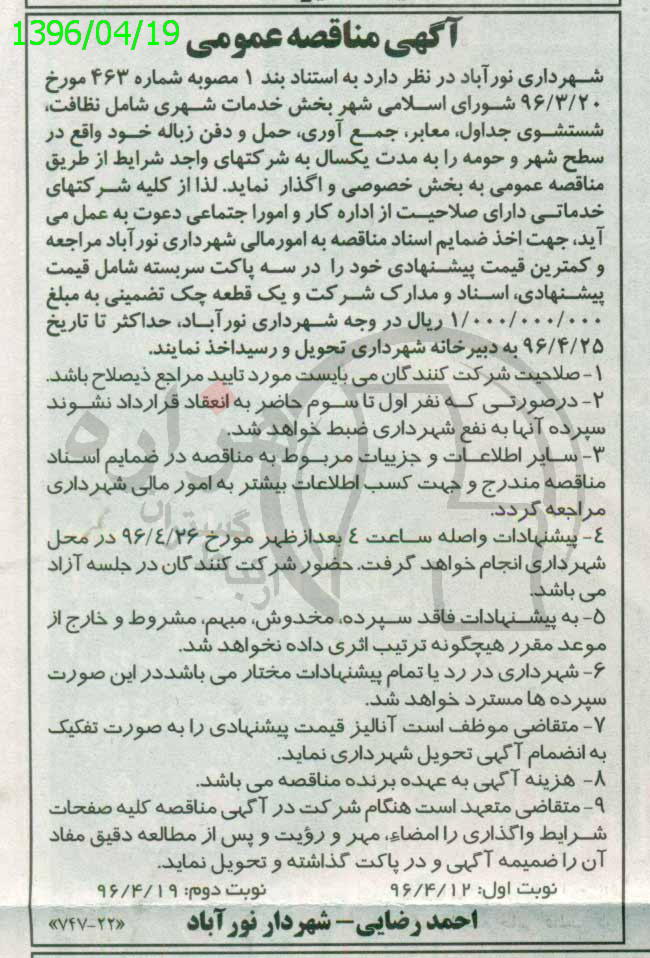 1396/04/19
آگهی مناقصه عمومی
شهرداری نورآباد در نظر دارد به استناد بند ۱ مصوبه شماره ۴۶۳ مورخ
۹۶/۳/۲۰ شورای اسلامی شهر بخش خدمات شهری شامل نظافت،
شستشوی جداول، معابر، جمع آوری، حمل و دفن زباله خود واقع در
سطح شهر و حومه را به مدت یکسال به شرکتهای واجد شرایط از طریق
مناقصه عمومی به بخش خصوصی واگذار نماید. لذا از کلیه شرکتهای
خدماتی دارای صلاحیت از اداره کار و امورا جتماعی دعوت به عمل می
آید، جهت اخذ ضمایم اسناد مناقصه به امورمالی شهرداری نورآباد مراجعه
و کمترین قیمت پیشنهادی خود را در سه پاکت سربسته شامل قیمت
پیشنهادی، اسناد و مدارک شرکت و یک قطعه چک تضمینی به مبلغ
۱/۰۰۰/۰۰۰/۰۰۰ ریال در وجه شهرداری نورآباد، حداکثر تا تاریخ
۹۶/۴/۲۵ به دبیرخانه شهرداری تحویل و رسیداخذ نمایند.
۱- صلاحیت شرکت کنندگان می بایست مورد تایید مراجع ذیصلاح باشد.
۲- درصورتی که نفر اول تا سوم حاضر به انعقاد قرارداد نشوند
سپرده آنها به نفع شهرداری ضبط خواهد شد.
۳- سایر اطلاعات و جزییات مربوط به مناقصه در ضمایم اسناد
مناقصه مندرج و جهت کسب اطلاعات بیشتر به امور مالی شهرداری
مراجعه گردد.
۴- پیشنهادات واصله ساعت ٤ بعدازظهر مورخ ۹۶/۴/۲۶ در محل
شهرداری انجام خواهد گرفت. حضور شرکت کنندگان در جلسه آزاد
می باشد.
۵- به پیشنهادات فاقد سپرده، مخدوش، مبهم، مشروط و خارج از
موعد مقرر هیچگونه ترتیب اثری داده نخواهد شد.
۶- شهرداری در رد یا تمام پیشنهادات مختار می باشددر این صورت
سپرده ها مسترد خواهد شد.
۷- متقاضی موظف است آنالیز قیمت پیشنهادی را به صورت تفکیک
به انضمام آگهی تحویل شهرداری نماید.
۸- هزینه آگهی به عهده برنده مناقصه می باشد.
۹- متقاضی متعهد است هنگام شرکت در آگهی مناقصه کلیه صفحات
شرایط واگذاری را امضاء، مهر و رؤیت و پس از مطالعه دقیق مفاد
آن را ضمیمه آگهی و در پاکت گذاشته و تحویل نماید.
نوبت اول: ۹۶/۴/۱۲ نوبت دوم: ۹۶/۴/۱۹
احمد رضایی- شهردار نورآباد «۷۴۷-۲۲»
هزاره